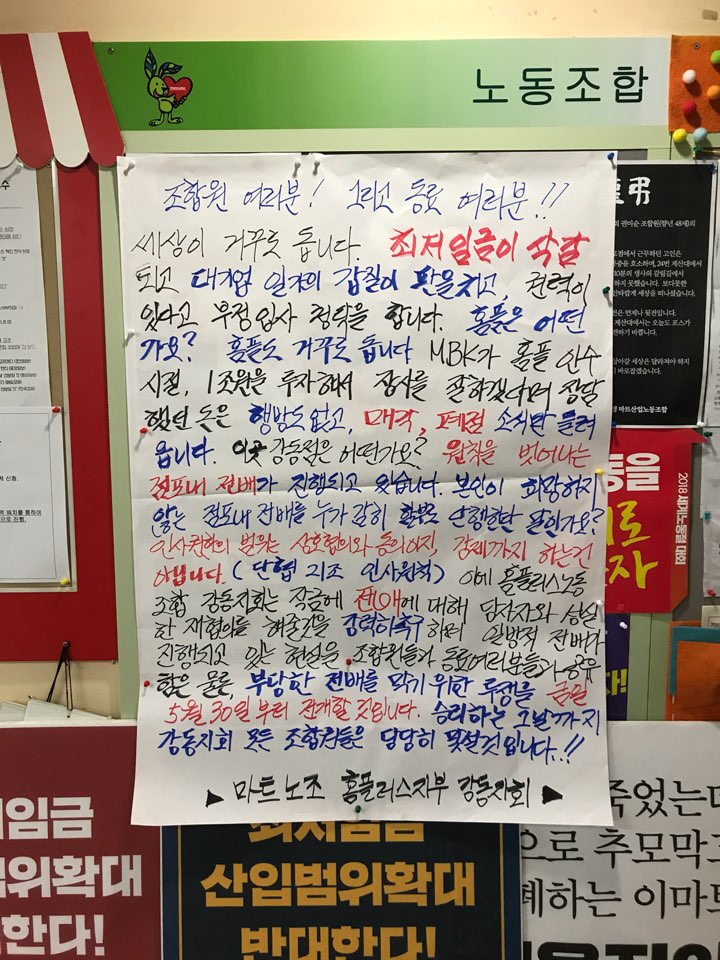 노동조합
조합원 여러분! 그리고 동료 여러분!!
세상이 거꾸로 돕니다. 최저임금이 삭감
되고 대기업 일가의 갑질이 판을치고, 권력이
있다고 부정입사 청탁을 합니다. 홈플은 어떤
가요? 홈플도 거꾸로 돕니다 MBK가 홈플 인수
시절, 1조원을 투자해서 장사를 잘하겠다며 장담
했던 돈은 행방도 없고, 매각, 폐점 소식만 들려
옵니다. 이곳 강동점은 어떤가요? 원칙을 벗어나는
점포내 전배가 진행되고 있습니다. 본인이 희망하지
않는 점포내 전배를 누가 감히 함부로 단행한단 말인가요?
인사권한의 범위는 상호협의와 동의이지, 강제까지 하는건
아닙니다. (단협 21조 인사원칙) 이에 홈플러스노동
조합 강동지회는 작금에 전배에 대해 당사자와 성실
한 재협의를 해줄것을 강력히촉구하며 일방적 전배가
진행되고 있는 현실을 조합원들과 동료여러분들과 공유
함은 물론, 부당한 전배를 막기 위한 투쟁을 금일
5월 30일 부터 전개할 것입니다. 승리하는 그날까지
강동지회 모든 조합원들은 당당히 맞설것입니다..!!
▶ 마트노조 홈플러스지부 강동지회 ▶
권미순 조합원(향년 48세)의
마트산업노동조합
2018 세계노동절 대회
임금
위확대
한다!
최저임금
산입범위확대
반대한다!
죽었는데
으로 추모막
폐하는 이마트